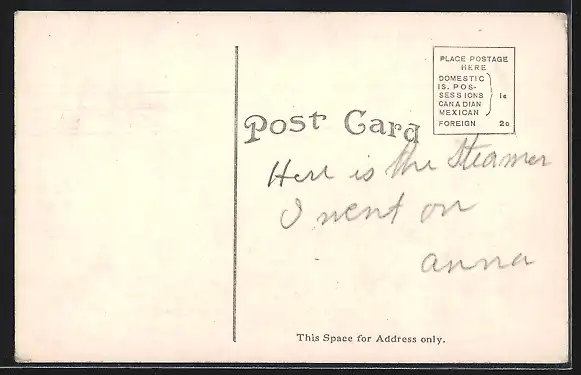 PLACE POSTAGE
HERE
DOMESTIC
IS. POS-
SESSIONS
CANADIAN
MEXICAN
1c
FOREIGN 2c
Post Card
Here is the Steamer
I went on
anna
This Space for Address only.